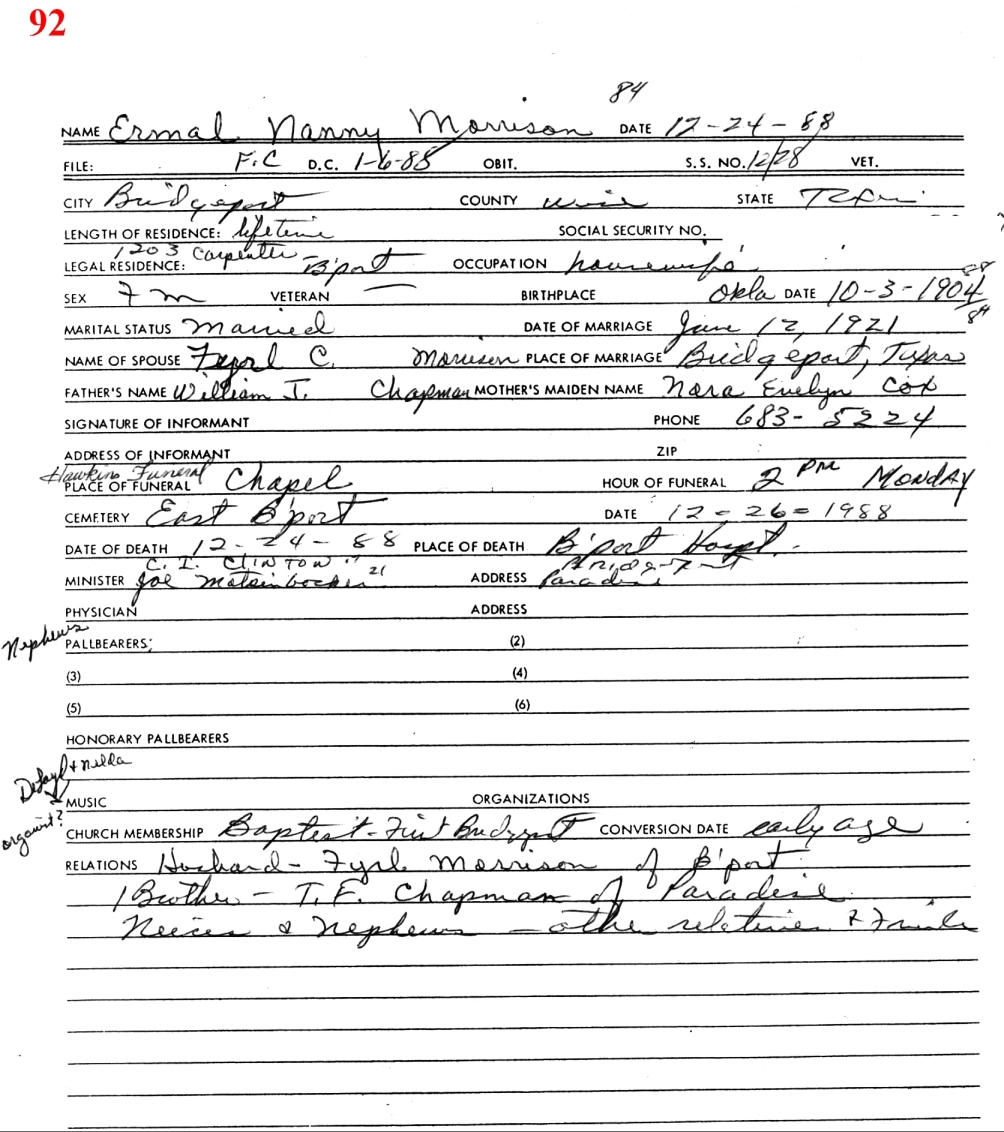 92
84
NAME Ermal Nanny Morrison DATE 12-24-88
FILE: F.C D.C. 1-6-88 OBIT. S.S. NO. 12/28 VET.
CITY Bridgeport COUNTY Wise STATE Texas
LENGTH OF RESIDENCE: lifetime SOCIAL SECURITY NO.
1203 Carpenter -
LEGAL RESIDENCE: B'port OCCUPATION housewife
SEX Fm VETERAN — BIRTHPLACE Okla DATE 10-3-1904
88
84
MARITAL STATUS Married DATE OF MARRIAGE June 12, 1921
NAME OF SPOUSE C. Morrison PLACE OF MARRIAGE Bridgeport, Texas
FATHER'S NAME William J. Chapman MOTHER'S MAIDEN NAME Nora Evelyn Cox
SIGNATURE OF INFORMANT PHONE 683-5224
ADDRESS OF INFORMANT ZIP
Hawkins Funeral
PLACE OF FUNERAL Chapel HOUR OF FUNERAL 2 PM Monday
CEMETERY East B'port DATE 12-26-1988
DATE OF DEATH 12-24-88 PLACE OF DEATH B'port Hospt.
C. I. CLINTON Bridgeport
MINISTER Joe ADDRESS Paradise
PHYSICIAN ADDRESS
Nephews
PALLBEARERS: (2)
(3) (4)
(5) (6)
HONORARY PALLBEARERS
& Nelda
MUSIC ORGANIZATIONS
organist?
CHURCH MEMBERSHIP Baptist - First Bridgeport CONVERSION DATE early age
RELATIONS Husband - Fyrl Morrison of B'port
1 Brother - T.F. Chapman of Paradise
Neices & Nephews - other relatives & Friends